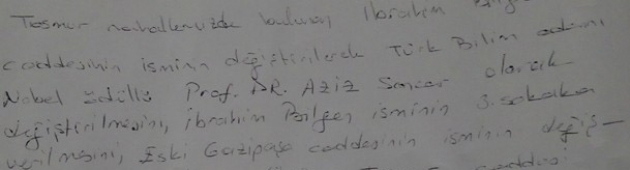 Tosmur mahallemizde bulunan İbrahim
caddesinin isminin değiştirilerek Türk Bilim adamı
Nobel ödüllü Prof. DR. Aziz Sancar olarak
değiştirilmesini, İbrahim Bilgen isminin 3. sokaka
verilmesini, Eski Gazipaşa caddesinin isminin değiş-
caddesi